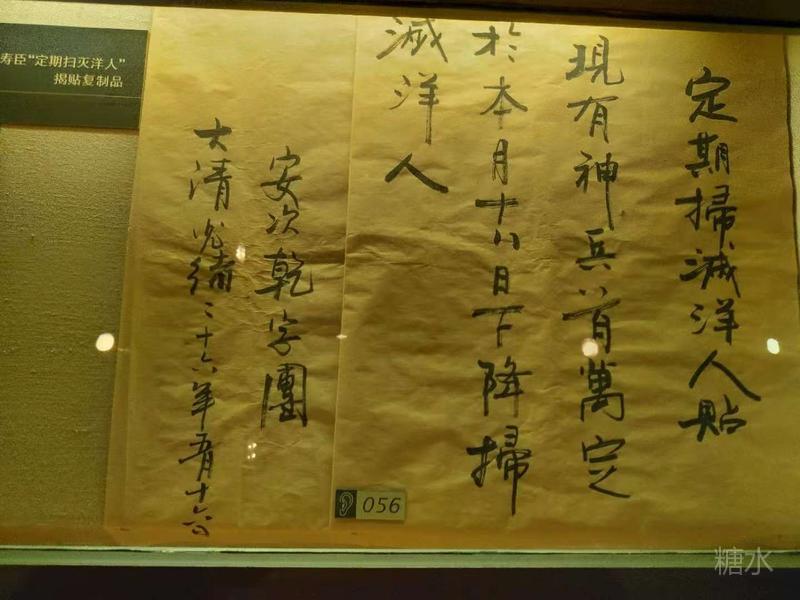 定期掃滅洋人貼
現有神兵八百萬定
於本月十八日下降掃
滅洋人
安次乾字團
大清光緒二十六年五月十六日
寿臣“定期扫灭洋人”
揭贴复制品
056
糖水